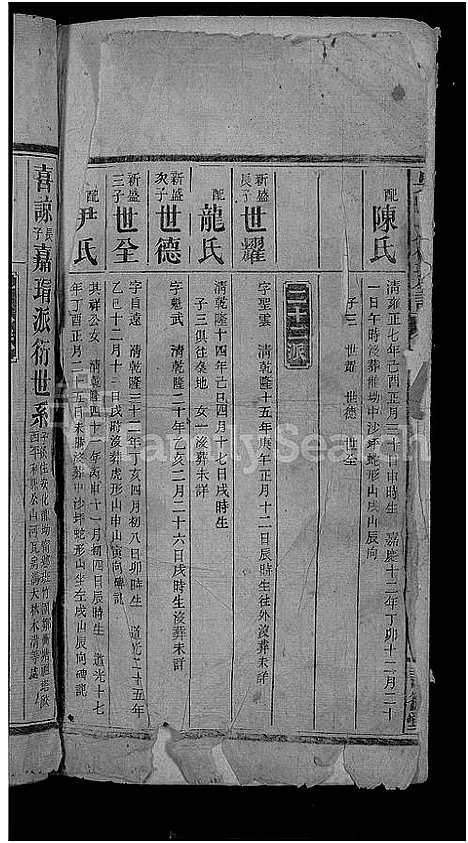 配陳氏
清雍正七年己酉正月三十日申時生　嘉慶十二年丁卯十二月二十
一日午時沒葬熊幼中沙坪蛇形山戌山辰向
子三　世耀　世德　世全
二十二派
新盛長子世耀
字聖雲　清乾隆十五年庚午正月十二日辰時生往外沒葬未詳
配龍氏
清乾隆十四年己巳四月十七日戌時生
子三俱往桑地　女一沒葬未詳
新盛次子世德
字魁武　清乾隆二十年乙亥二月二十六日戌時生沒葬未詳
新盛三子世全
字自遠　清乾隆三十二年丁亥四月初八日卯時生　道光二十五年
乙巳十二月十三日戌時沒葬虎形山申山寅向碑記
配尹氏
其祥公女　清乾隆四十一年丙申十一月初四日辰時生　道光十七
年丁酉正月二十五日未時沒葬中沙坪蛇形山坐左戌山辰向碑記
喜諒長子嘉瑨派衍世系
FamilySearch